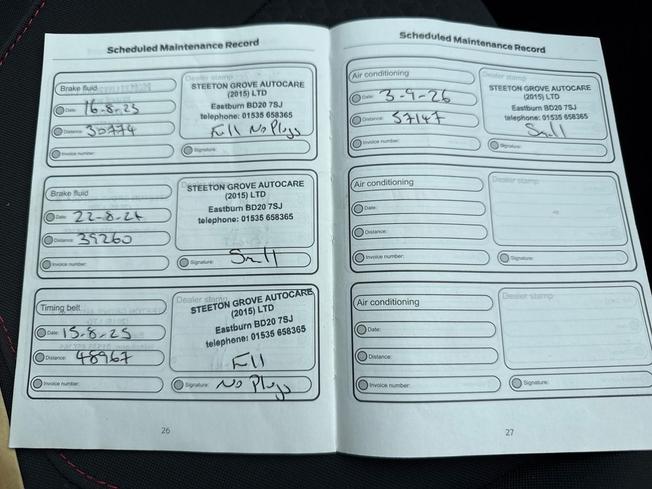 Scheduled Maintenance Record
Brake fluid
Dealer stamp
STEETON GROVE AUTOCARE
(2015) LTD
Eastburn BD20 7SJ
telephone: 01535 658365
Date: 16-8-23
Distance: 30774
Full No Plugs
Invoice number:
Signature:
Brake fluid
STEETON GROVE AUTOCARE
(2015) LTD
Eastburn BD20 7SJ
telephone: 01535 658365
Date: 22-8-24
Distance: 39260
Invoice number:
Signature: Small
Timing belt
Dealer stamp
STEETON GROVE AUTOCARE
(2015) LTD
Eastburn BD20 7SJ
telephone: 01535 658365
Date: 15-8-25
Distance: 48967
Full
Invoice number:
Signature: No Plugs
26
Scheduled Maintenance Record
Air conditioning
Dealer stamp
STEETON GROVE AUTOCARE
(2015) LTD
Eastburn BD20 7SJ
telephone: 01535 658365
Date: 3-9-26
Distance: 57147
Small
Invoice number:
Signature:
Air conditioning
Dealer stamp
Date:
Distance:
Invoice number:
Signature:
Air conditioning
Dealer stamp
Date:
Distance:
Invoice number:
Signature:
27